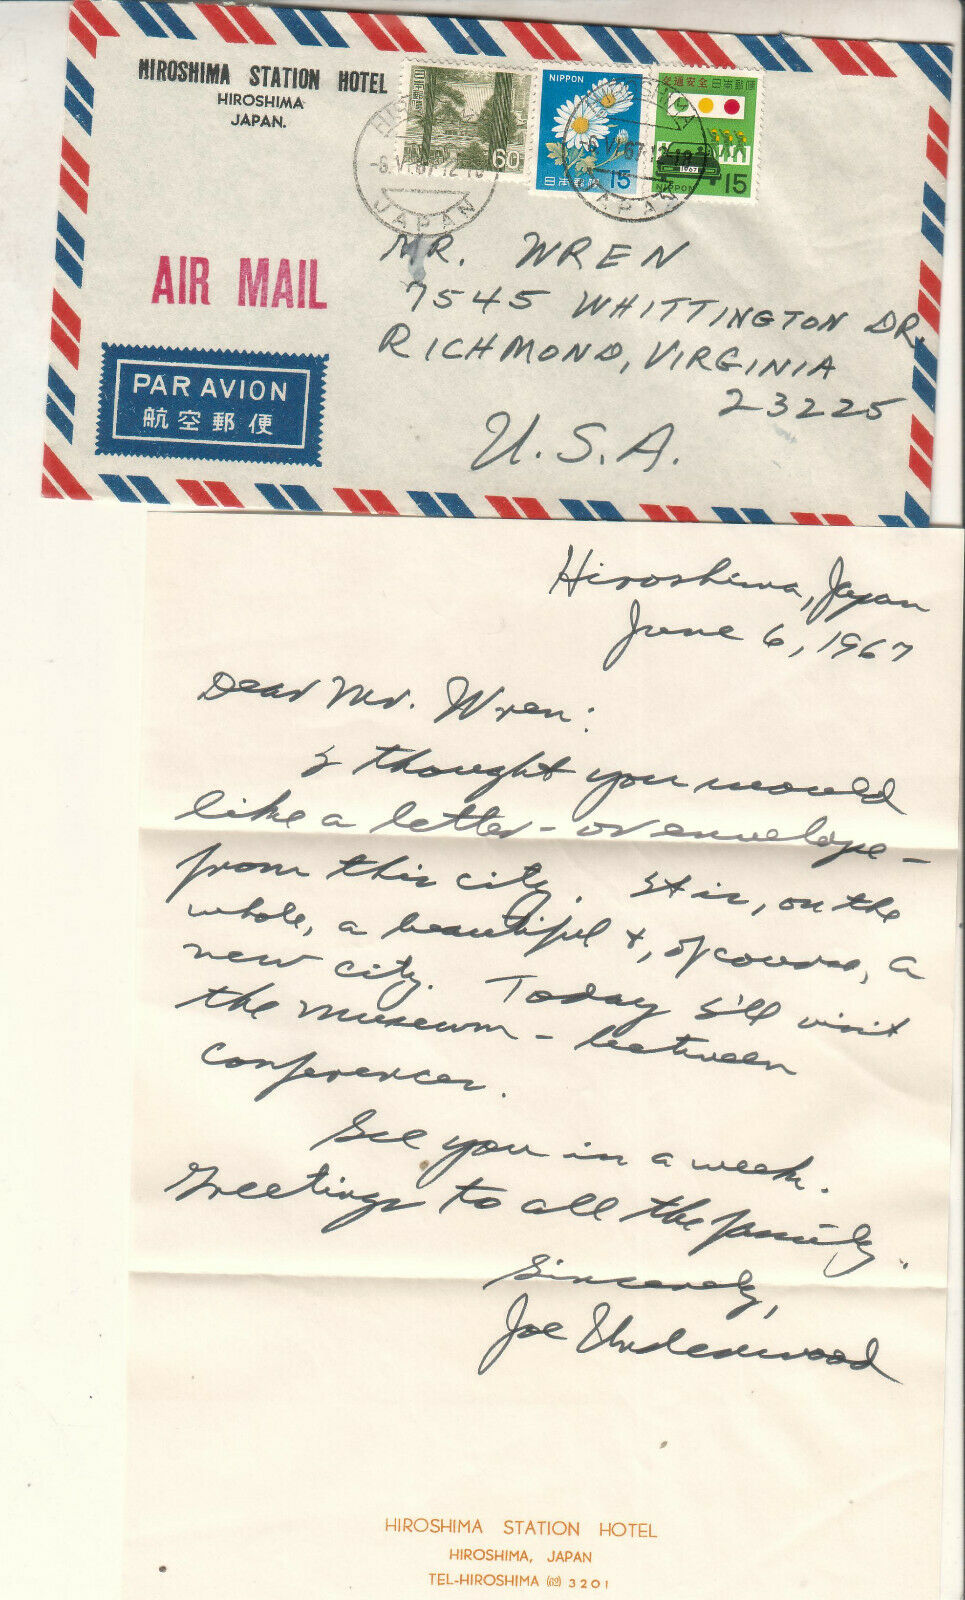 HIROSHIMA STATION HOTEL
HIROSHIMA
JAPAN.
日本郵便
60
NIPPON
日本郵便 15
交通安全 日本郵便
1967
NIPPON 15
-6.VI.67.12-18
JAPAN
HIROSHIMA
-6.VI.67.12-18
JAPAN
AIR MAIL
PAR AVION
航空郵便
MR. WREN
7545 WHITTINGTON DR,
RICHMOND, VIRGINIA
23225
U.S.A.
Hiroshima, Japan
June 6, 1967
Dear Mr. Wren:
I thought you would
like a letter - or envelope -
from this city. It is, on the
whole, a beautiful +, of course, a
new city. Today I'll visit
the museum - between
conferences.
See you in a week.
Greetings to all the family.
Sincerely,
Joe Underwood
HIROSHIMA STATION HOTEL
HIROSHIMA, JAPAN
TEL-HIROSHIMA (62) 3201